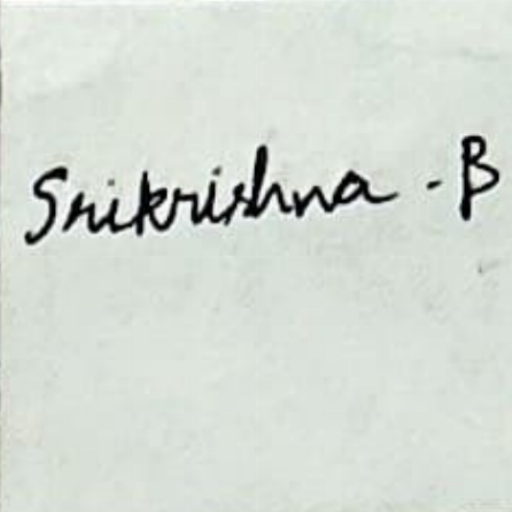 Srikrishna - B